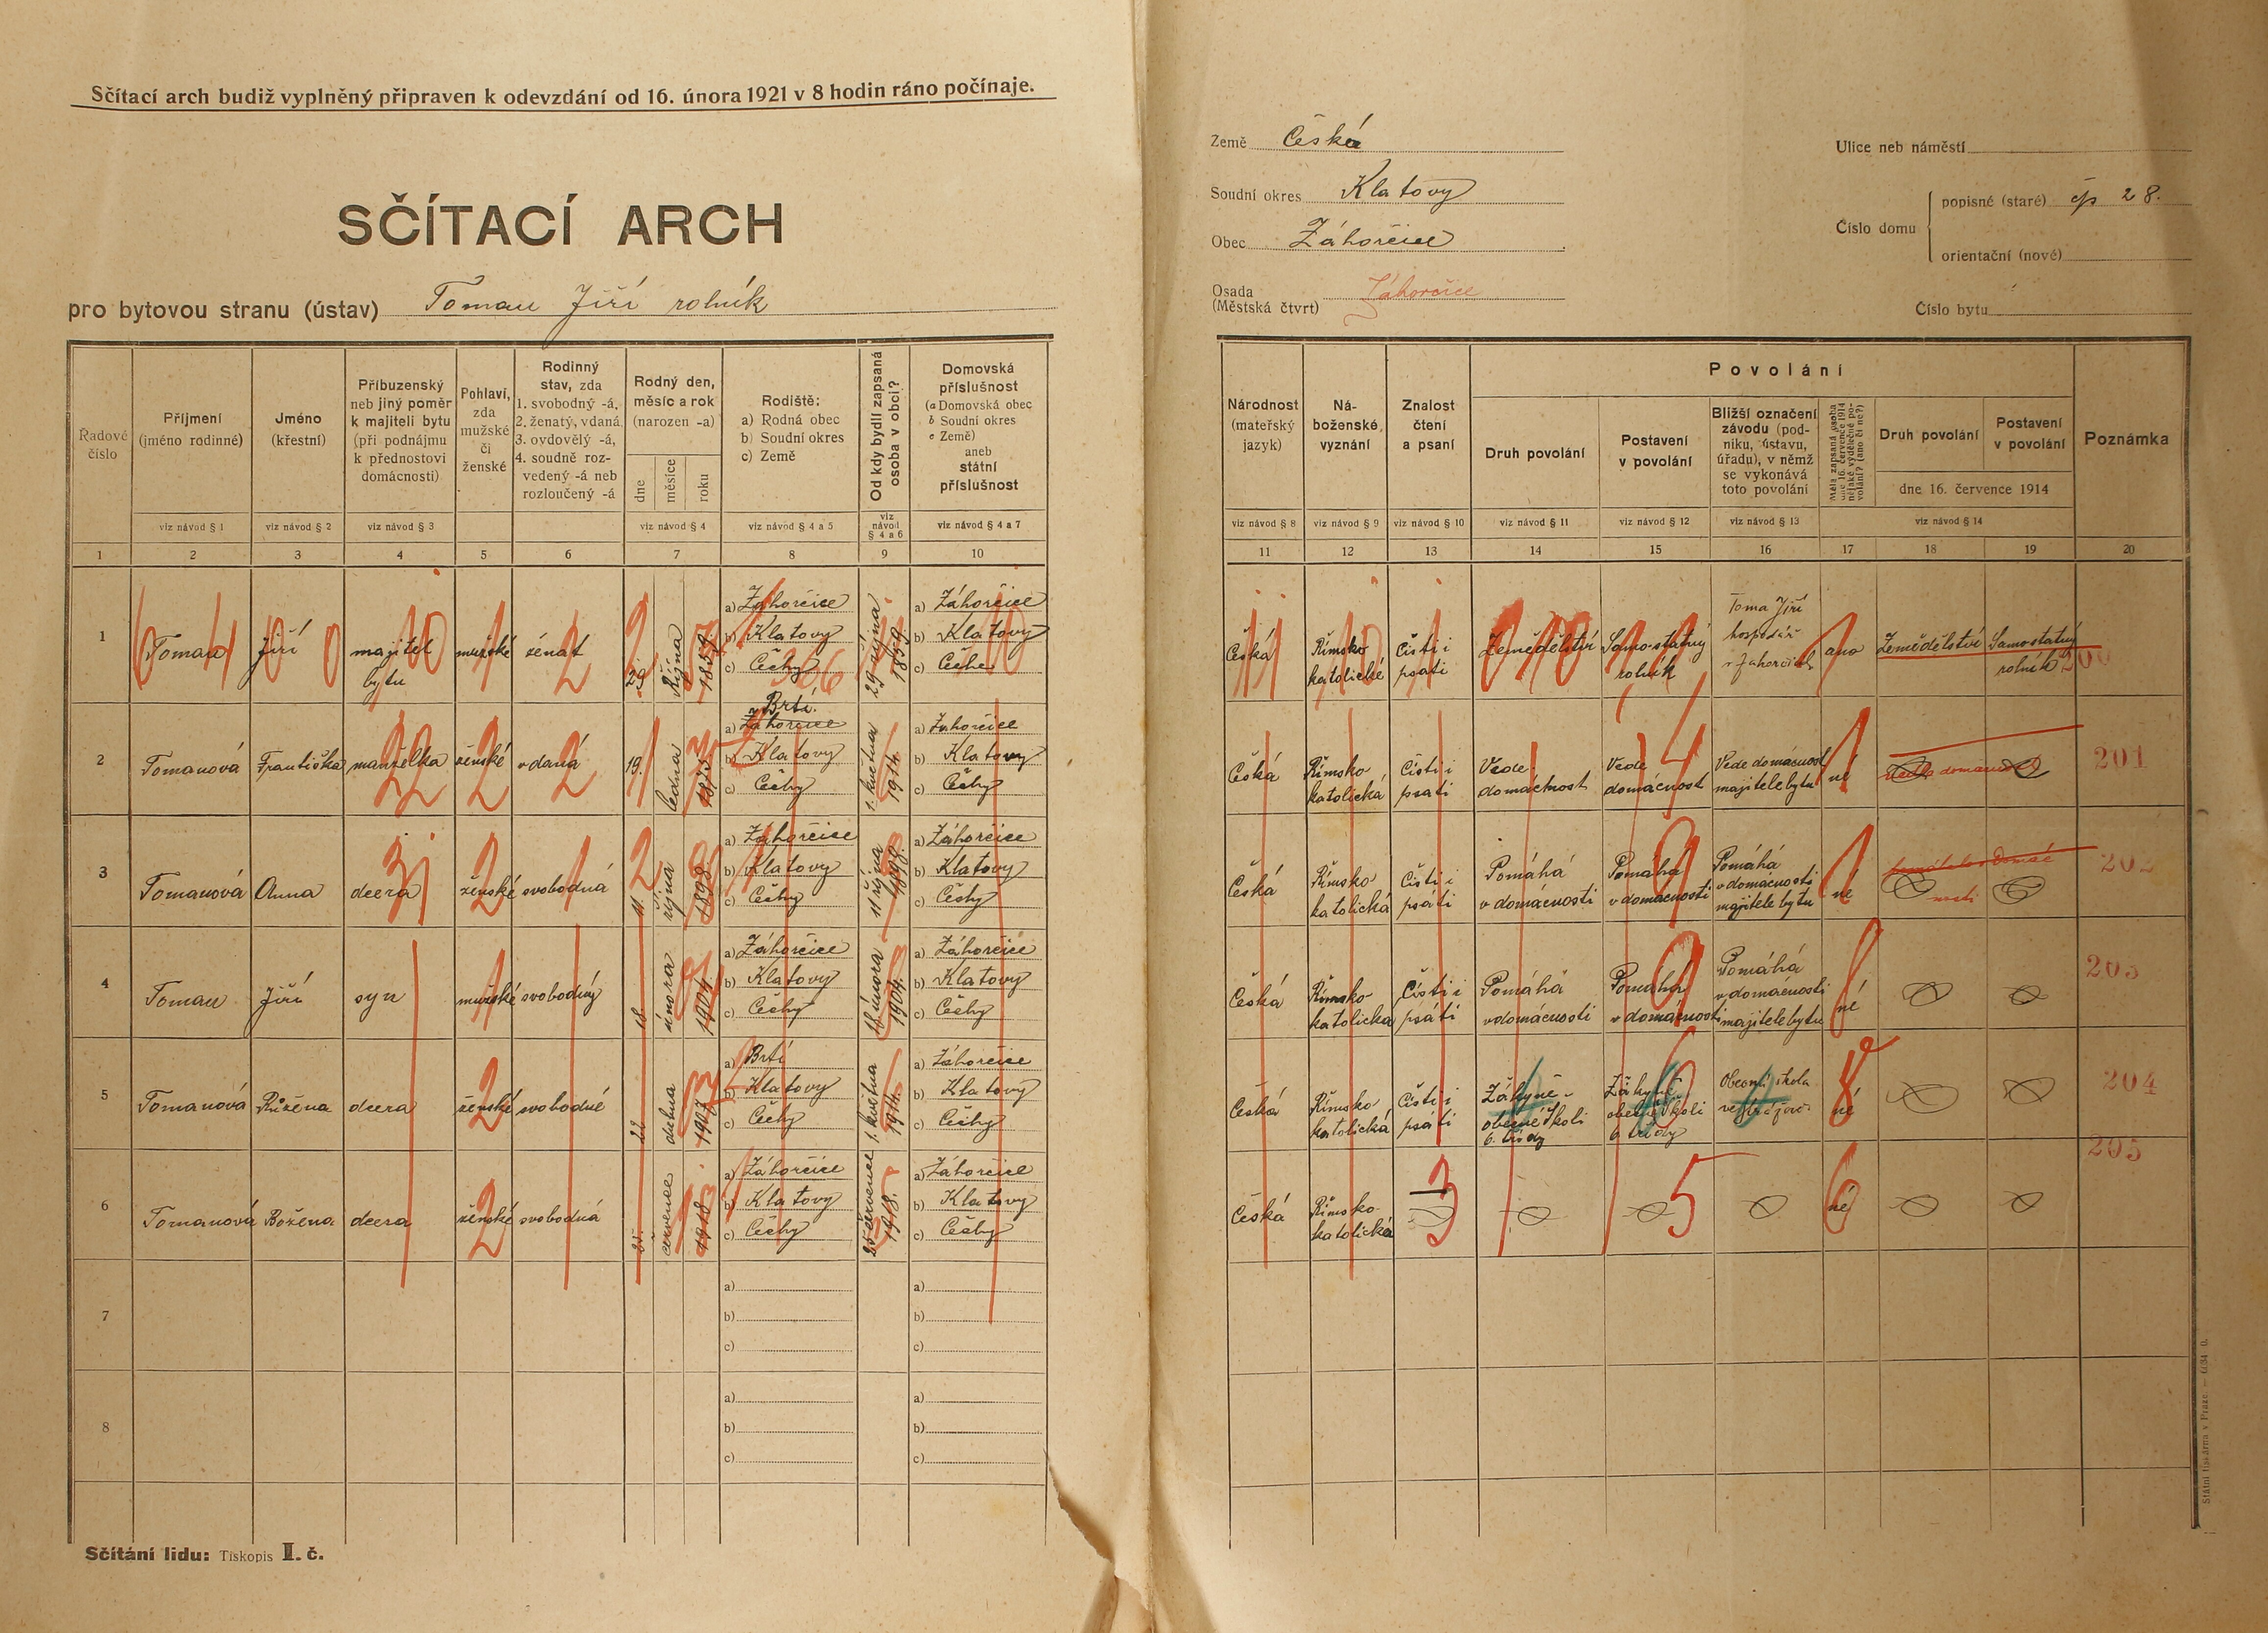 Sčítací arch budiž vyplněný připraven k odevzdání od 16. února 1921 v 8 hodin ráno počínaje.
SČÍTACÍ ARCH
pro bytovou stranu (ústav) Toman Jiří rolník
Země Česká
Soudní okres Klatovy
Obec Záhorčice
Osada
(Městská čtvrt) Záhorčice
Ulice neb náměstí
Číslo domu
popisné (staré) čp 28.
orientační (nové)
Číslo bytu
Řadové
číslo
Příjmení
(jméno rodinné)
viz návod § 1
Jméno
(křestní)
viz návod § 2
Příbuzenský
neb jiný poměr
k majiteli bytu
(při podnájmu
k přednostovi
domácnosti)
viz návod § 3
Pohlaví,
zda
mužské
či
ženské
Rodinný
stav, zda
1. svobodný -á,
2. ženatý, vdaná
3. ovdovělý -á,
4. soudně roz-
vedený -á neb
rozloučený -á
Rodný den,
měsíc a rok
(narozen -a)
dne
měsíce
roku
viz návod § 4
Rodiště:
a) Rodná obec
b) Soudní okres
c) Země
viz návod § 4 a 5
Od kdy bydlí zapsaná
osoba v obci?
viz
návod
§ 4 a 6
Domovská
příslušnost
(a Domovská obec
b Soudní okres
c Země)
aneb
státní
příslušnost
viz návod § 4 a 7
1 2 3 4 5 6 7 8 9 10
Národnost
(mateřský
jazyk)
viz návod § 8
Ná-
boženské
vyznání
viz návod § 9
Znalost
čtení
a psaní
viz návod § 10
Povolání
Druh povolání
viz návod § 11
Postavení
v povolání
viz návod § 12
Bližší označení
závodu (pod-
niku, ústavu,
úřadu), v němž
se vykonává
toto povolání
viz návod § 13
Měla zapsaná osoba
dne 16. července 1914
nějaké výdělečné po-
volání? (ano či ne?)
Druh povolání
Postavení
v povolání
dne 16. července 1914
viz návod § 14
Poznámka
11 12 13 14 15 16 17 18 19 20
1
Toman
Jiří
majitel
bytu
mužské
ženat
29.
Října
1859.
a) Záhorčice
b) Klatovy
c) Čechy
366
29 října
1859
a) Záhorčice
b) Klatovy
c) Čechy
Česká
Římsko
katolické
Čísti i
psáti
Zemědělství
Samostatný
rolník
Toma Jiří
hospodář
v Záhorčicích
ano
Zemědělství
Samostatný
rolník
200
2
Tomanová
Františka
manželka
ženské
vdaná
19.
ledna
a) Záhorčice
z Brtí.
b) Klatovy
c) Čechy
1. května
1914
a) Záhorčice
b) Klatovy
c) Čechy
Česká
Římsko
katolická
Čísti i
psáti
Vede
domácnost
Vede
domácnost
Vede domácnost
majitele bytu
né
201
3
Tomanová
Anna
dcera
ženské
svobodná
11.
října
1898.
a) Záhorčice
b) Klatovy
c) Čechy
11 října
1898.
a) Záhorčice
b) Klatovy
c) Čechy
Česká
Římsko
katolická
Čísti i
psáti
Pomáhá
v domácnosti
Pomáhá
v domácnosti
Pomáhá
v domácnosti
majitele bytu
né
202
4
Toman
Jiří
syn
mužské
svobodný
18
února
1904.
a) Záhorčice
b) Klatovy
c) Čechy
18 února
1904.
a) Záhorčice
b) Klatovy
c) Čechy
Česká
Římsko-
katolická
Čísti i
psáti
Pomáhá
v domácnosti
Pomáhá
v domácnosti
Pomáhá
v domácnosti
majitele bytu
né
203
5
Tomanová
Růžena
dcera
ženské
svobodné
22
dubna
1907
a) Brtí
b) Klatovy
c) Čechy
1. května
1914.
a) Záhorčice
b) Klatovy
c) Čechy
Česká
Římsko
katolická
Čísti i
psáti
Žákyně
obecné školi
6. třídy
Žákyně
obecné školi
6 třídy
Obecní škola
né
204
6
Tomanová
Božena
dcera
ženské
svobodná
25.
července
1918.
a) Záhorčice
b) Klatovy
c) Čechy
25 července
1918.
a) Záhorčice
b) Klatovy
c) Čechy
Česká
Římsko-
katolická
3
5
né
205
7
a)
b)
c)
a)
b)
c)
8
a)
b)
c)
a)
b)
c)
Sčítání lidu: Tiskopis I. č.